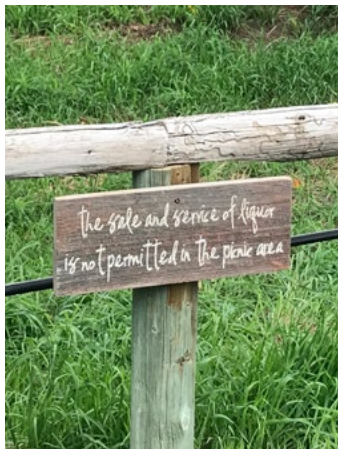 the sale and service of liquor
is not permitted in the picnic area